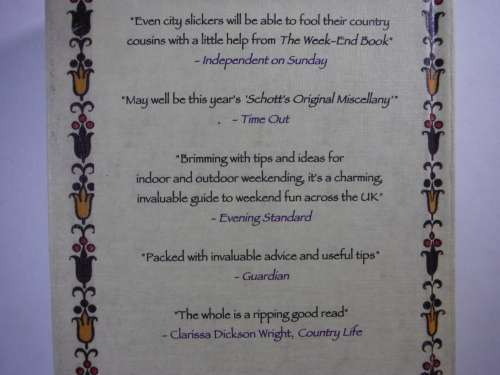 "Even city slickers will be able to fool their country
cousins with a little help from The Week-End Book"
- Independent on Sunday
"May well be this year's 'Schott's Original Miscellany'"
- Time Out
"Brimming with tips and ideas for
indoor and outdoor weekending, it's a charming,
invaluable guide to weekend fun across the UK"
- Evening Standard
"Packed with invaluable advice and useful tips"
- Guardian
"The whole is a ripping good read"
- Clarissa Dickson Wright, Country Life